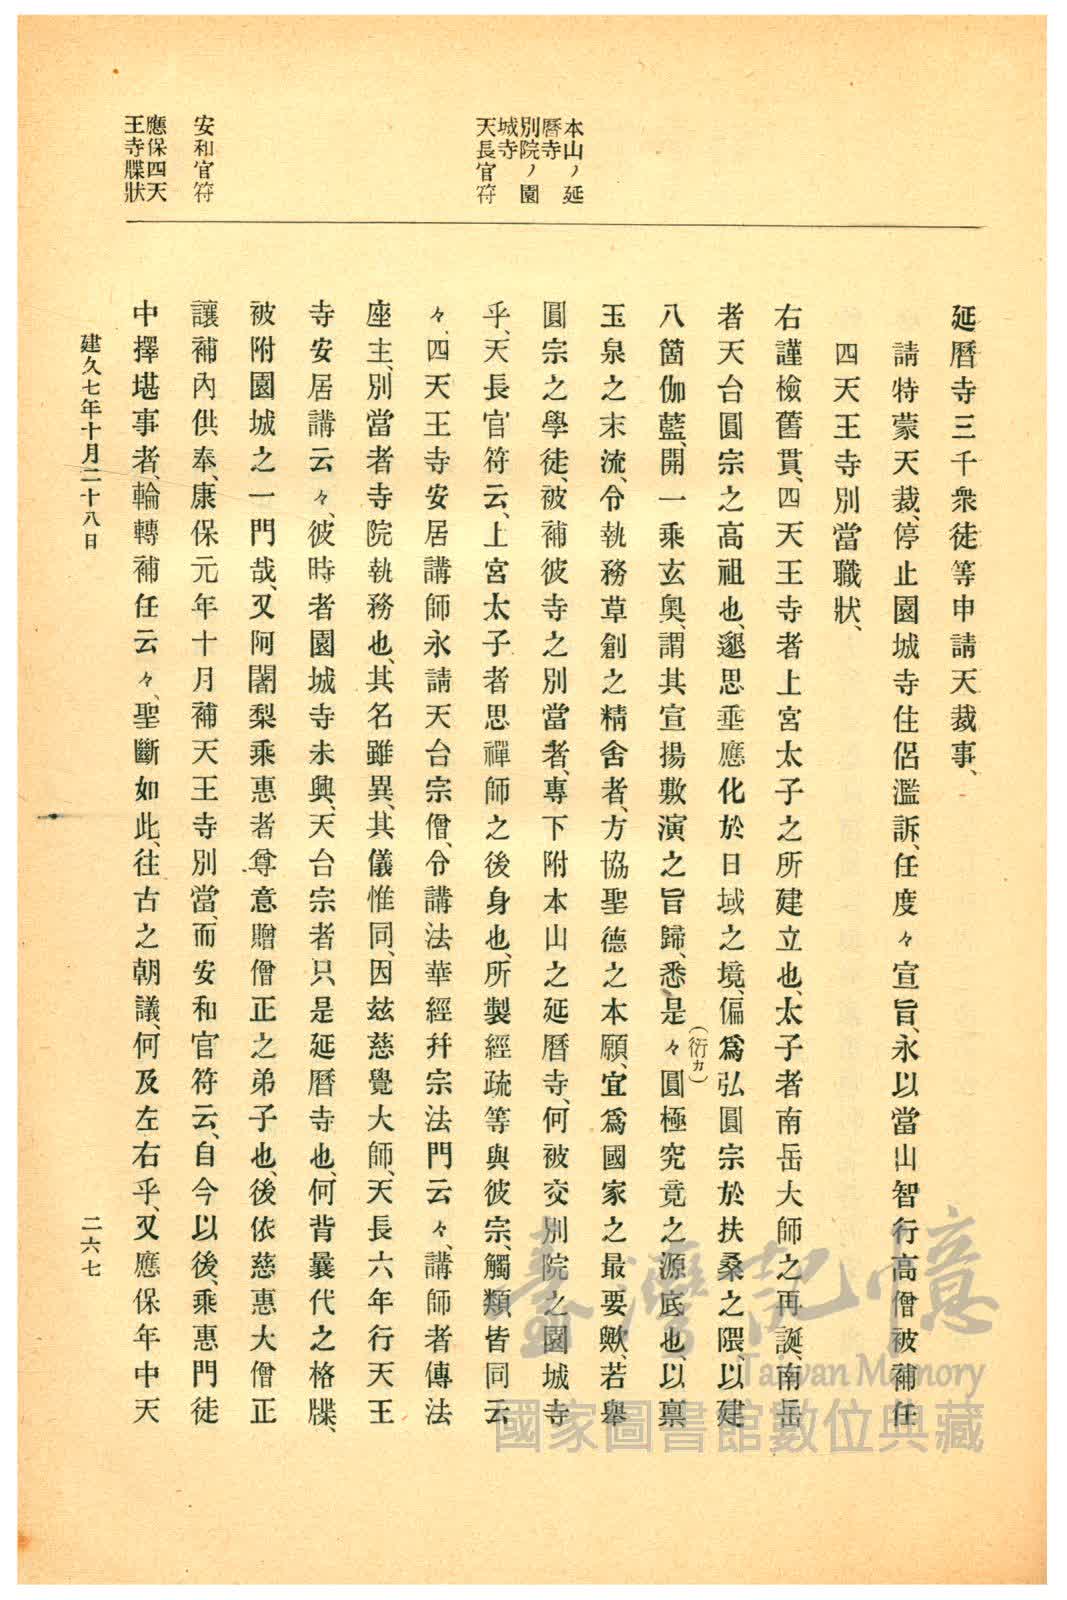 本山ノ延
曆寺
別院ノ園
城寺
天長官符
安和官符
應保四天
王寺牒狀
延曆寺三千衆徒等申請天裁事、
請特蒙天裁、停止園城寺住侶濫訴、任度々宣旨、永以當山智行高僧被補任
四天王寺別當職狀、
右謹檢舊貫、四天王寺者上宮太子之所建立也、太子者南岳大師之再誕、南岳
者天台圓宗之高祖也、遙思垂應化於日域之境、偏爲弘圓宗於扶桑之隈、以建
八箇伽藍、開一乘玄奧、謂其宣揚敷演之旨歸、悉是々(衍カ)圓極究竟之源底也、以禀
玉泉之末流、令執務草創之精舍者、方協聖德之本願、宜爲國家之最要歟、若舉
圓宗之學徒、被補彼寺之別當者、專下附本山之延曆寺、何被交別院之園城寺
乎、天長官符云、上宮太子者思禪師之後身也、所製經疏等與彼宗、觸類皆同云
々、四天王寺安居講師永請天台宗僧、令講法華經幷宗法門云々、講師者傳法
座主、別當者寺院執務也、其名雖異、其儀惟同、因玆慈覺大師、天長六年行天王
寺安居講云々、彼時者園城寺未興、天台宗者只是延曆寺也、何背曩代之格牒、
被附園城之一門哉、又阿闍梨乘惠者尊意贈僧正之弟子也、後依慈惠大僧正
讓補內供奉、康保元年十月補天王寺別當、而安和官符云、自今以後、乘惠門徒
中擇堪事者、輪轉補任云々、聖斷如此、往古之朝議、何及左右乎、又應保年中天
建久七年十月二十八日
二六七
臺灣記憶
Taiwan Memory
國家圖書館數位典藏